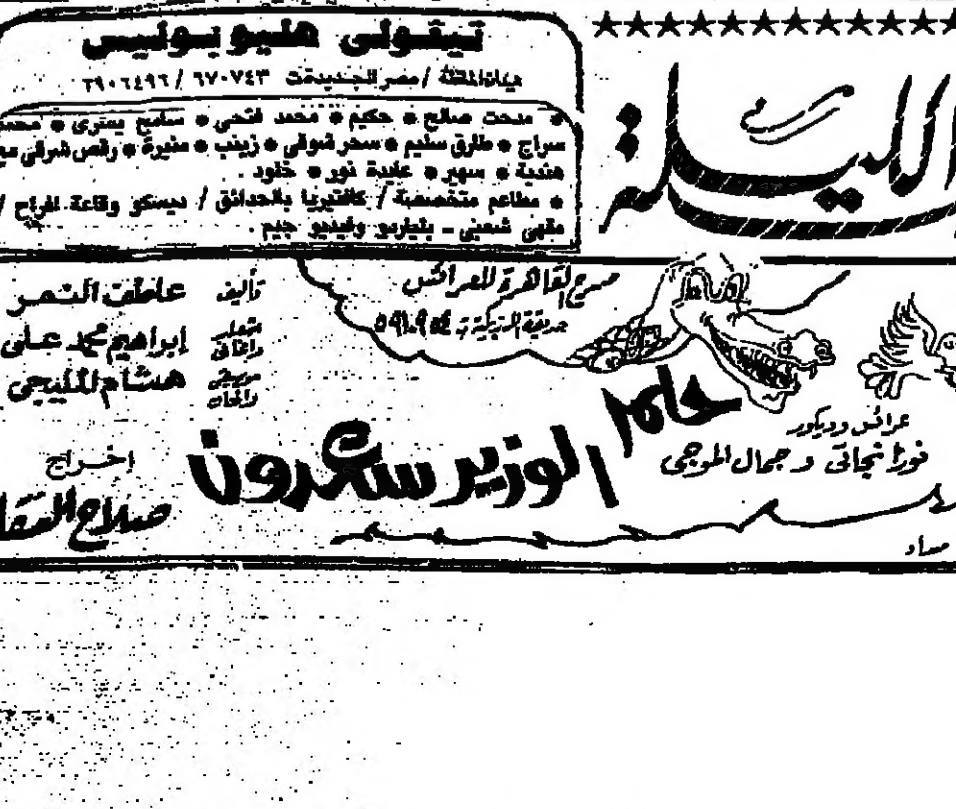 تيفولى هليوبوليس
ميدان الماظة / مصر الجديدة ت ٦٧٠٧٤٣ / ٢٩٠٦٤٩٦
الليلة
* مدحت صالح * حكيم * محمد فتحى * سامح يسرى * محمد
سراج * طارق سليم * سحر شوقى * زينب * منيرة * رقص شرقى مع
هندية * سهير * عايدة نور * خلود .
* مطاعم متخصصة / كافتيريا بالحدائق / ديسكو وقاعة افراح /
مقهى شعبى ـ بلياردو وفيديو جيم .
مسرح القاهرة للعرائس
حديقة الازبكية ت
حلم
الوزير سعدون
تأليف عاطف النمر
إبراهيم محمد على
موسيقى والحان هشام المليجى
إخراج
صلاح السقا
عرائس وديكور
نجاتى و جمال الموجى
مساء